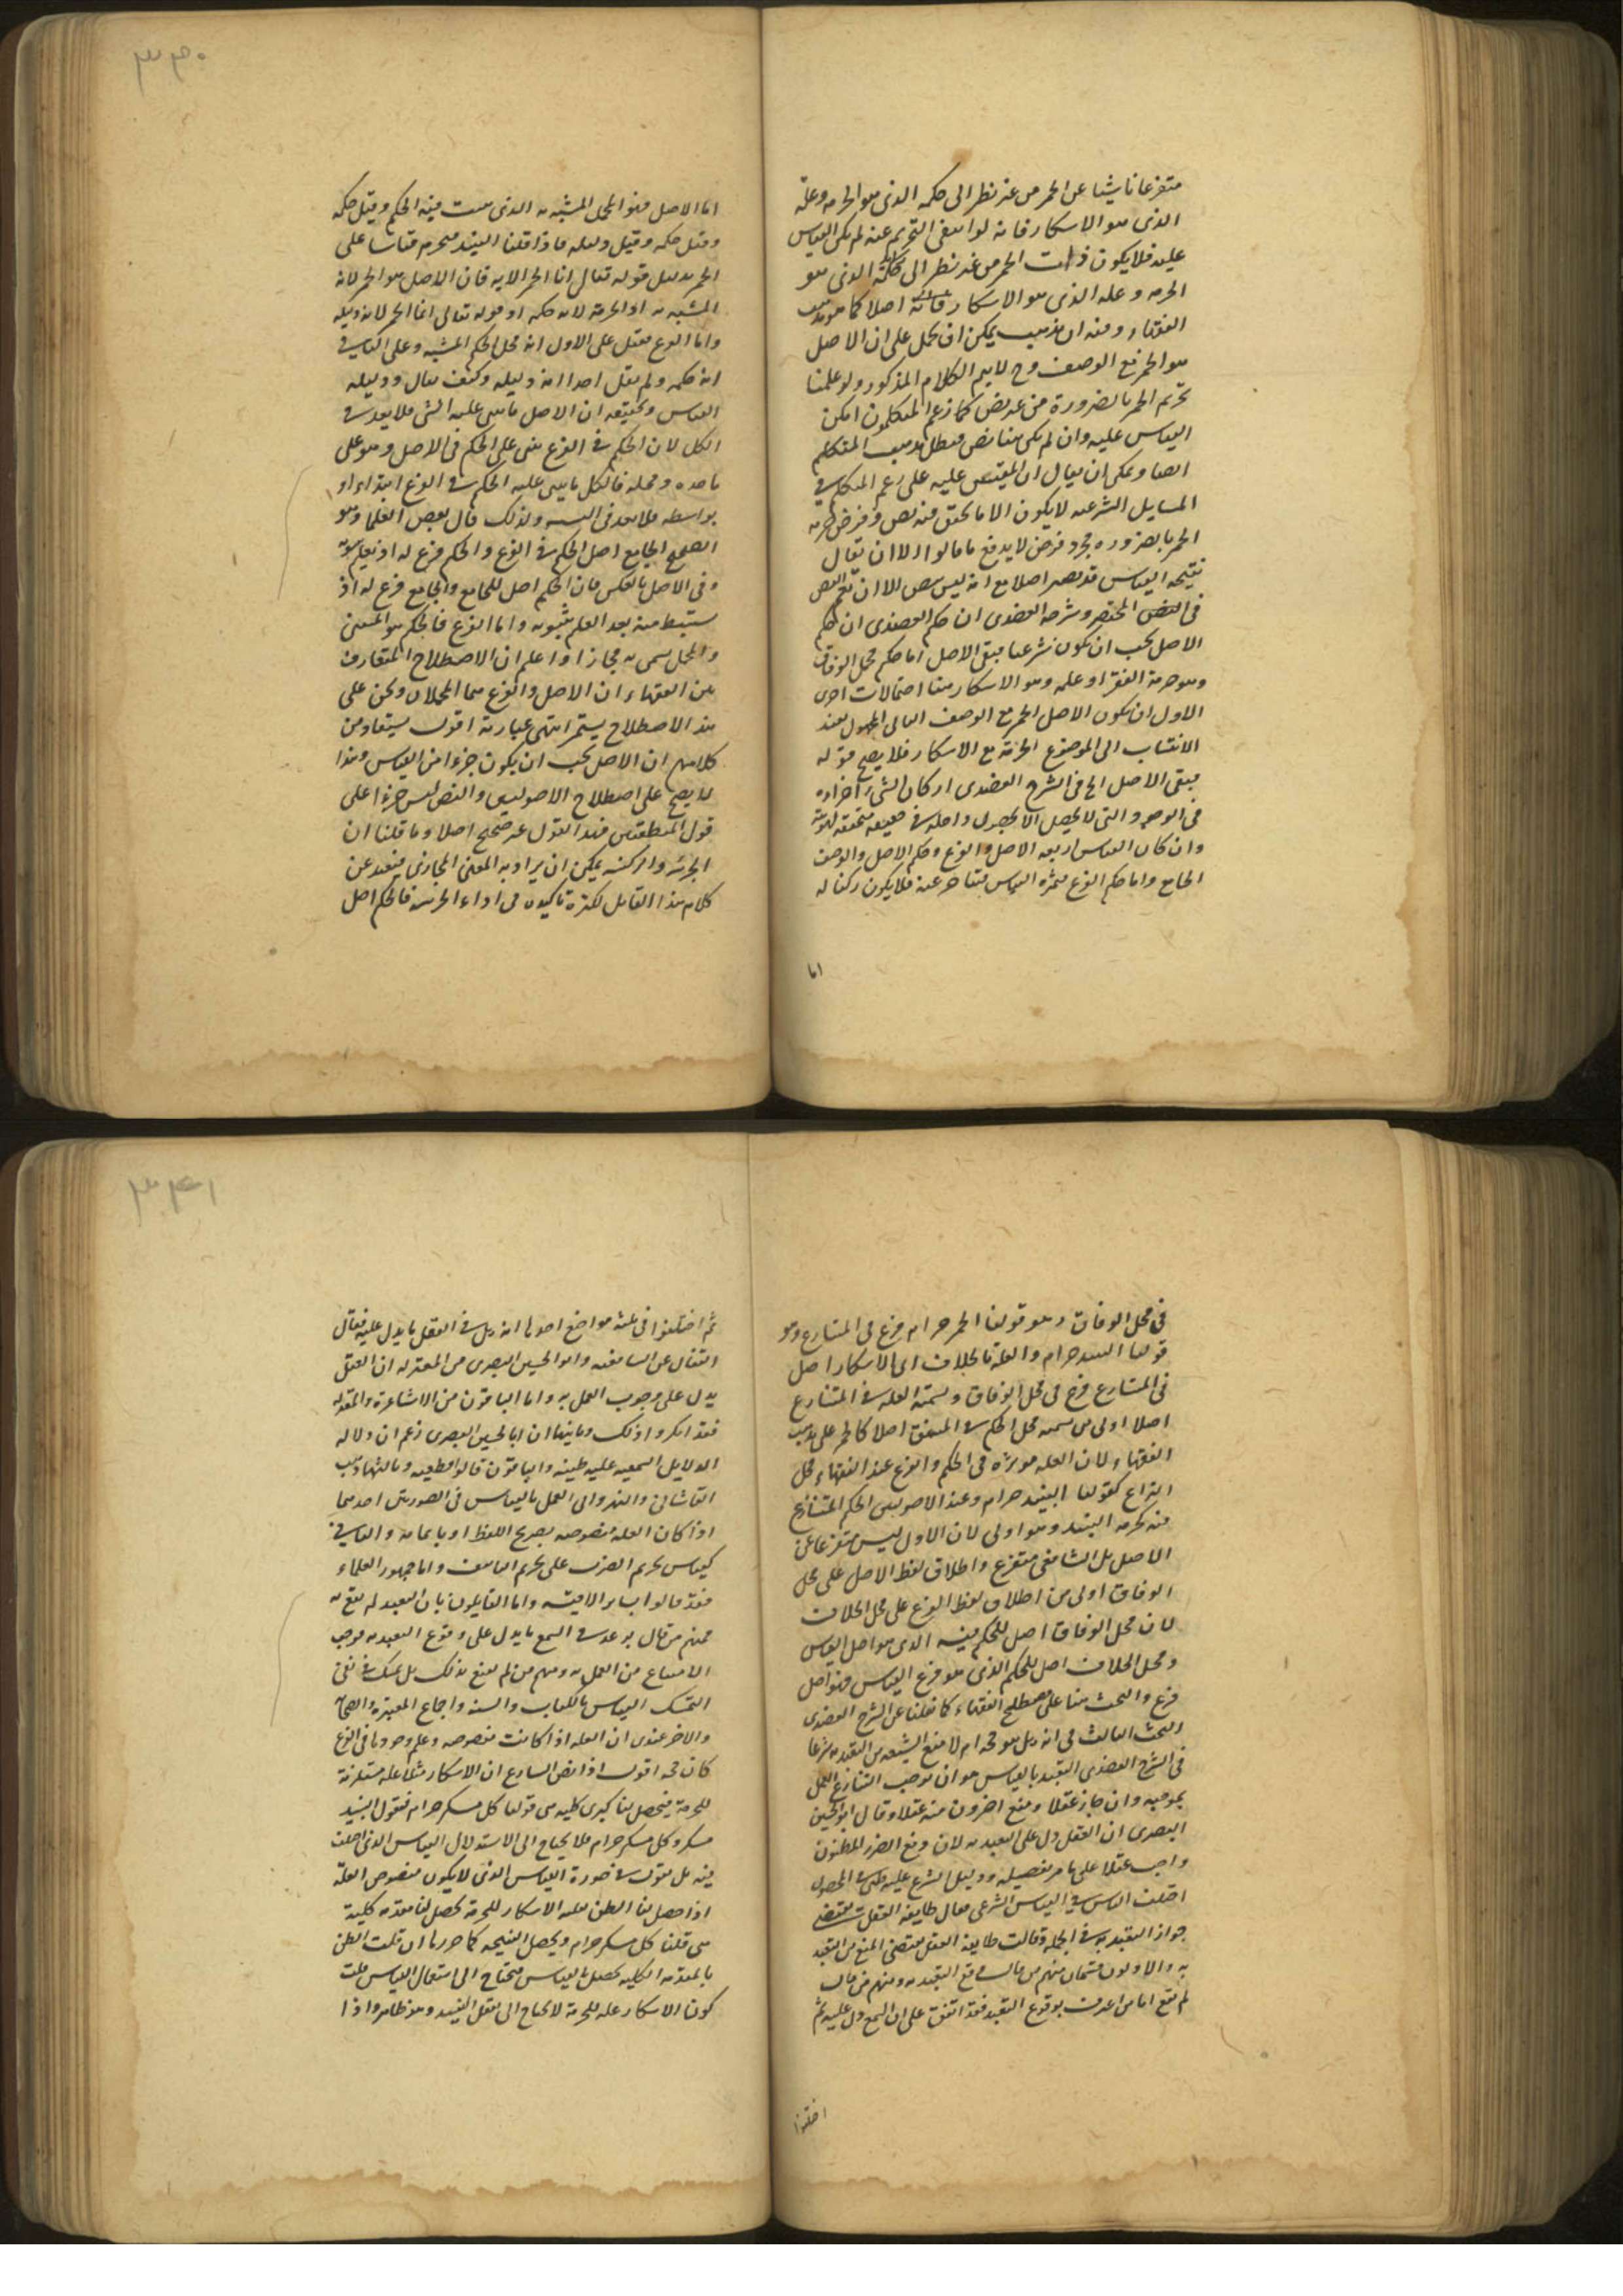 ٣٤٠
متفرعا ناشيا عن الخمر من غير نظر الى حكمه الذى هو الحرمه وعلته
الذى هو الاسكار فانه لو انتفى التحريم عنه لم يكن القياس
عليه فلا يكون ذات الخمر من غير نظر الى حكمه الذى هو
الحرمه وعله الذى هو الاسكار اصلا كما هو مذهب
الفقهاء وفيه ان مذهب يمكن ان يحمل على ان الاصل
هو الخمر مع الوصف وح لا يتم الكلام المذكور ولو علمنا
تحريم الخمر بالضرورة من غير نص كما زعم المتكلمون امكن
القياس عليه وان لم يكن هنا نص فبطل مذهب المتكلم
ايضا ويمكن ان يقال ان المقيس عليه على زعم المتكلم في
المسايل الشرعيه لا يكون الا ما تحقق فيه نص وفرض حرمه
الخمر بالضروره مجرد فرض لا يدفع ما قالوا الا ان يقال
نتيجه القياس قد يصير اصلا مع انه ليس بنص الا ان
في المختصر وشرحه العضدى ان حكم
الاصل يجب ان يكون شرعيا بقى الاصل اما حكم محل الوفاق
وهو حرمة او عله وهو الاسكار هنا احتمالات اخرى
الاول ان يكون الاصل الخمر مع الوصف
الانتساب الى الموضوع الحرمة مع الاسكار فلا يصح قوله
بقى الاصل الخ في الشرح العضدى اركان الشى اجزاءه
في الوجود والتى لا يحصل الا بحصول داخله في حقيقته
وان كان القياس اربعه الاصل والفرع وحكم الاصل والوصف
الجامع واما حكم الفرع فثمره القياس فيتاخر عنه فلا يكون ركنا له
اما
اما الاصل فهو المحل المشبه به الذى ثبت فيه الحكم وقيل حكمه
وقيل حكمه وقيل دليله فاذا قلنا النبيذ فيحرم قياسا على
الخمر بدليل قوله تعالى انما الخمر الايه فان الاصل هو الخمر لانه
المشبه به او الحرمة لانه حكمه او قوله تعالى انما الخمر لانه دليله
واما الفرع فقيل على الاول انه محل الحكم المشبه وعلى الثانى
انه حكمه ولم يقل احد انه دليله وكيف يقال ودليله
القياس وتحقيقه ان الاصل ما يبنى عليه الشى فلا بعد في
الكل لان الحكم في الفرع يبنى على الحكم في الاصل وهو على
ماخذه ومحله فالكل ما يبنى عليه الحكم في الفرع ابتداء او
بواسطه فلا بعد في التسميه ولذلك قال بعض العلما وهو
الصحيح الجامع اصل الحكم في الفرع والحكم فرع له اذ يعلم ثبوته
وفي الاصل بالعكس فان الحكم اصل للجامع والجامع فرع له اذ
يستنبط منه بعد العلم بثبوته واما الفرع فالحكم هو المبتنى
والمحل سمى به مجازا واعلم ان الاصطلاح المتعارف
بين الفقهاء ان الاصل والفرع هما المحلان ونحن على
هذا الاصطلاح يستمر انتهى عبارته اقول يستفاد من
كلامهم ان الاصل يجب ان يكون جزءا من القياس وهذا
لا يصح على اصطلاح الاصوليين والنص ليس جزءا على
قول المنطقيين فهذا القول غير صحيح اصلا وما قلنا ان
الجزئيه والركنيه يمكن ان يراد به المعنى المجازى فبعيد عن
كلام هذا القايل لكثرة تاكيده في اداء الجزئيه فالحكم اصل
٣٤١
في محل الوفاق وهو قولنا الخمر حرام فرع في المتنازع وهو
قولنا النبيذ حرام والعله بالخلاف اى الاسكار اصل
في المتنازع فرع في محل الوفاق وتسمية العله في المتنازع
اصلا اولى من تسميه محل الحكم في المتفق اصلا كالخمر على مذهب
الفقهاء لان العله موثره في الحكم والفرع عند الفقهاء محل
النزاع كقولنا النبيذ حرام وعند الاصوليين الحكم المتنازع
فيه كحرمه النبيذ وهو اولى لان الاول ليس متفرعا عن
الاصل بل الثانى متفرع واطلاق لفظ الاصل على محل
الوفاق اولى من اطلاق لفظ الفرع على محل الخلاف
لان محل الوفاق اصل للحكم فيه الذى هو اصل القياس
ومحل الخلاف اصل للحكم الذى هو فرع القياس فهو اصل
فرع والبحث هنا على مصطلح الفقهاء كما نقلنا عن الشرح العضدى
البحث الثالث في انه هل هو حجه ام لا منع الشيعه من التعبد به شرعا
في الشرح العضدى التعبد بالقياس هو ان يوجب الشارع العمل
بموجبه وان جاز عقلا ومنع اخرون منه عقلا وقال ابو الحسين
البصرى ان العقل دل على التعبد به لان دفع الضرر المظنون
واجب عقلا على ما مر تفصيله ودليل الشرع عليه
اختلف الناس في القياس الشرعى فقال طايفه العقل يقتضى
جواز التعبد به في الجمله وقالت طايفه العقل يقتضى المنع من التعبد
به والاولون قسمان منهم من قال وقع التعبد به ومنهم من قال
لم يقع اما من اعترف بوقوع التعبد فقد اتفق على ان السمع دل عليه ثم
اختلفوا
ثم اختلفوا في ثلثه مواضع احدها انه هل في العقل ما يدل عليه فقال
القفال عن الشافعيه وابو الحسين البصرى من المعتزله ان العقل
يدل على وجوب العمل به واما الباقون من الاشاعرة والمعتزله
فقد انكروا ذلك وثانيها ان ابا الحسين البصرى زعم ان دلاله
الدلايل السمعيه عليه ظنيه والباقون قالوا قطعيه وثالثها ذهب
القاشانى والنهروانى العمل بالقياس في الصورتين احديهما
اذا كان العله منصوصه بصريح اللفظ او بايمائه والثانى
كقياس تحريم الضرب على تحريم التافيف واما جمهور العلماء
فقد قالوا بساير الاقيسه واما القايلون بان التعبد لم يقع به
فمنهم من قال لم يوجد في السمع ما يدل على وقوع التعبد به فوجب
الامتناع من العمل به ومنهم من لم يقنع بذلك بل تمسك في نفى
التمسك القياس بالكتاب والسنه واجماع العتره والصحابه
والاخر عندى ان العله اذا كانت منصوصه وعلم وجودها في الفرع
كان حجه اقول اذا نص الشارع ان الاسكار مثلا عله مستلزمة
للحرمة فيحصل هنا كبرى كليه هى قولنا كل مسكر حرام فنقول النبيذ
مسكر وكل مسكر حرام فلا يحتاج الى الاستدلال القياس الذى اختلف
فيه بل نقول في صورة القياس الذى لا يكون منصوص العلة
اذا حصل لنا الظن بعليه الاسكار للحرمة تحصل لنا مقدمه كلية
هى قلنا كل مسكر حرام ويحصل النتيجه كما حررنا ان قلت الظن
بالمقدمه الكليه يحصل بالقياس فيحتاج الى استعمال القياس قلت
كون الاسكار عله للحرمة لا يحتاج الى نقل النبيذ وهو ظاهر واذا